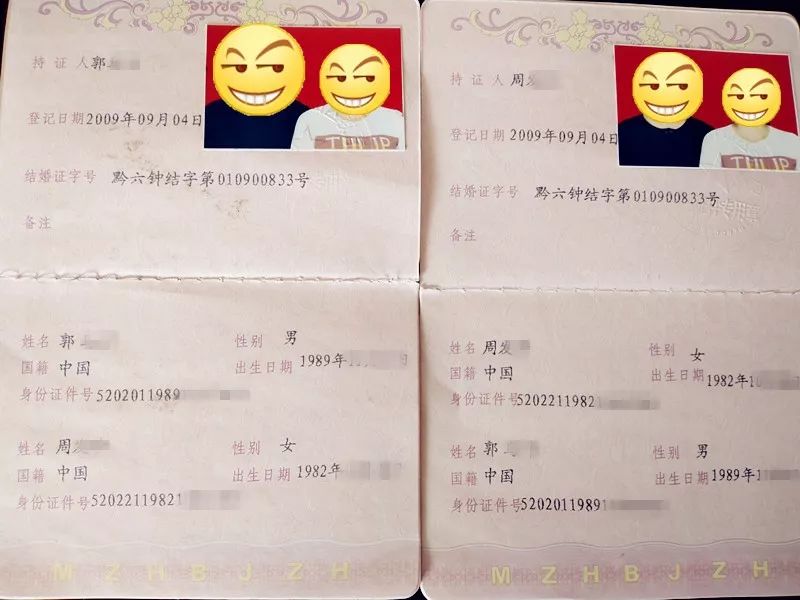 持证人郭
登记日期2009年09月04日
结婚证字号 黔六钟结字第010900833号
备注
THLIP
姓名 郭 性别 男
国籍 中国 出生日期 1989年
身份证件号5202011989
姓名 周发 性别 女
国籍 中国 出生日期 1982年
身份证件号52022119821
M Z H B J Z H
持证人周发
登记日期 2009年09月04日
结婚证字号 黔六钟结字第010900833号
备注
THLIP
姓名 周发 性别 女
国籍 中国 出生日期 1982年
身份证件号5202211982
姓名 郭 性别 男
国籍 中国 出生日期1989年1
身份证件号52020119891
M Z H B J Z H